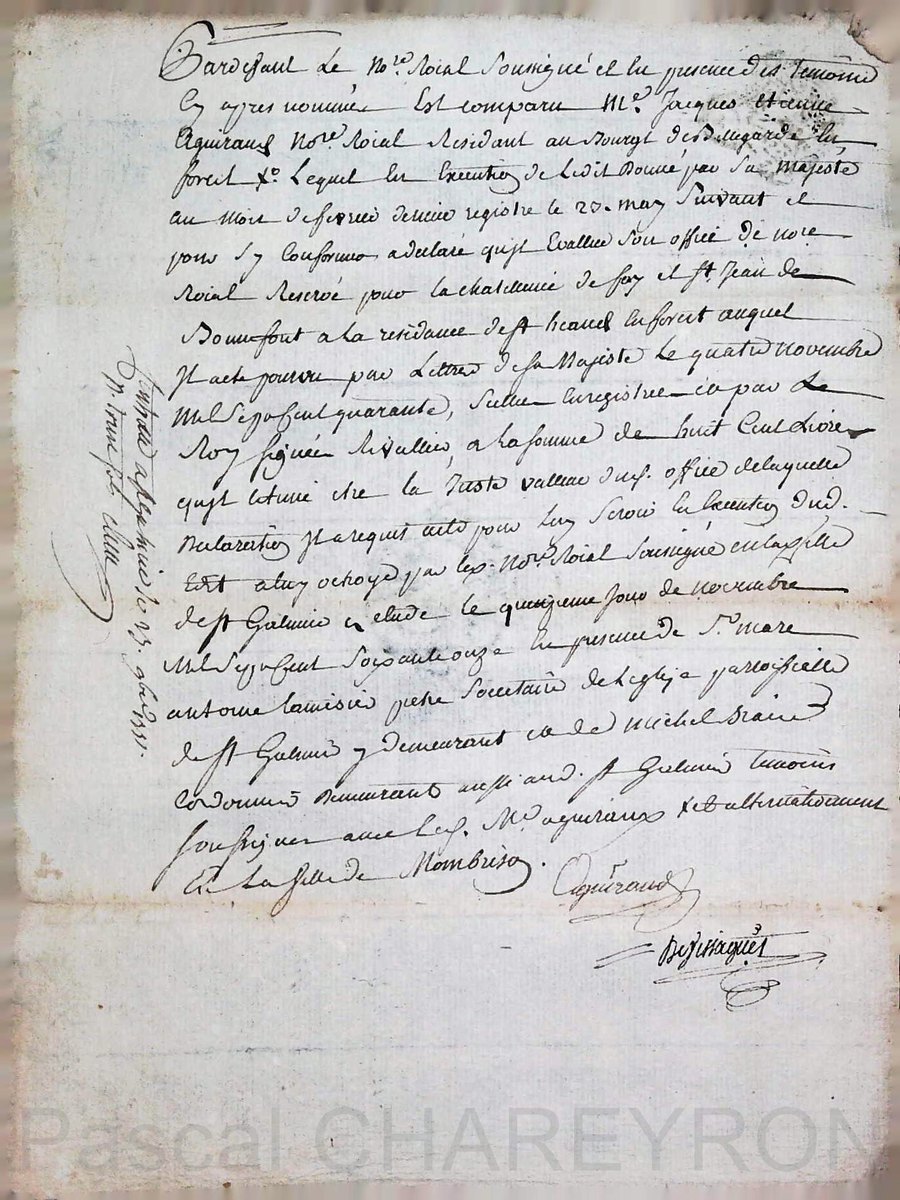 Pardevant Le No.re Roial Soussigné et En presence des Temoins
Cy apres nommés Est comparu M.e Jacques etienne
Aguiraud No.re Roial Residant au Bourgt de Belegarde En
forest X.o Lequel En Execution de Ledit Donné par Sa Majeste
au mois de fevrier dernier registre le 23. may Suivant et
pour Sy Conformer a declaré qu'il Evallue Son office de nore
Roial Reservé pour la chatelenie de fay et St. Jean de
Bonnefont a la residance de St heand En forest auquel
Jl a eté pourvu par Lettres de Sa Majeste Le quatre novembre
Mil Sept Cent quarante, Enregistrée par Le
Roy Signée a la Somme de huit Cent Livres
quil Estime etre la Juste valleur dud. office de laquelle
Declaration Jl a requit acte pour luy Servir En Execution dud.
Edit a luy octroyé par Le No.re Roial Soussigné en la ville
de St Galmier Etude le quinzieme Jour de novembre
Mil Sept Cent Soixante onze En presence de S.r mare
antoine pretre Societaire de leglise parroissielle
de St Galmier y demeurant et de Michel
Cordonnier Demeurant aussi aud. St Galmier temoins
soussignes avec led. M.e aguiraud X et alternativement
En La ville de Mombrison.
Aguiraud
Pascal CHAREYRON